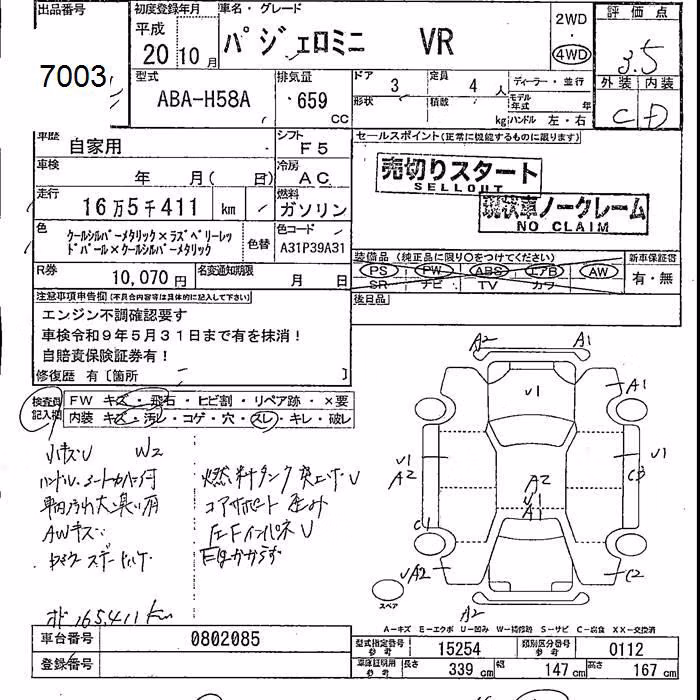 出品番号
7003
初度登録年月
平成
20 10 月
車名・グレード
パジェロミニ VR
2WD
・
4WD
評価点
3.5
外装 内装
C D
型式
ABA-H58A
排気量
659
CC
ドア 3
定員 4 人
ディーラー・並行
形状
積数 kg
モデル年式 年
ハンドル 左・右
車歴
自家用
シフト
F5
セールスポイント(正常に機能するものに限ります)
売切りスタート
SELLOUT
現状車ノークレーム
NO CLAIM
車検
年 月( 日)
冷房
AC
走行
16万5千411 km
燃料
ガソリン
色
クールシルバーメタリック×ラズベリーレッ
ドパール×クールシルバーメタリック
色替
色コード
A31P39A31
装備品(純正品に限り○をつけてください)
PS PW ABS エアB AW
SR ナビ TV カワ
新車保証書
有・無
R券
10,070円
名変通知期限
月 日
後日品
注意事項申告欄(不具合内容等は具体的に記入して下さい)
エンジン不調確認要す
車検令和9年5月31日まで有を抹消!
自賠責保険証券有!
修復歴 有〔箇所 〕
検査員記入欄
FW キズ・飛石・ヒビ割・リペア跡・×要
内装 キズ・汚レ・コゲ・穴・スレ・キレ・破レ
小キズU W2
ハンドル、シートカバー付
車内汚れ大、臭い有
AWキズ
燃料タンク突上ゲU
コアサポート歪み
左FインパネU
下回りサビ
165,411km
A2 A1
V1
A1
V1
A2
A2
U
A1
V1
C3
C1
VA2
C2
A2
スペア
A−キズ E−エクボ U−凹み W−補修跡 S−サビ C−腐食 XX−交換済
車台番号
0802085
登録番号
型式指定番号
参考
15254
類別区分番号
参考
0112
車庫証明用
参考
長さ 339 cm
幅 147 cm
高さ 167 cm